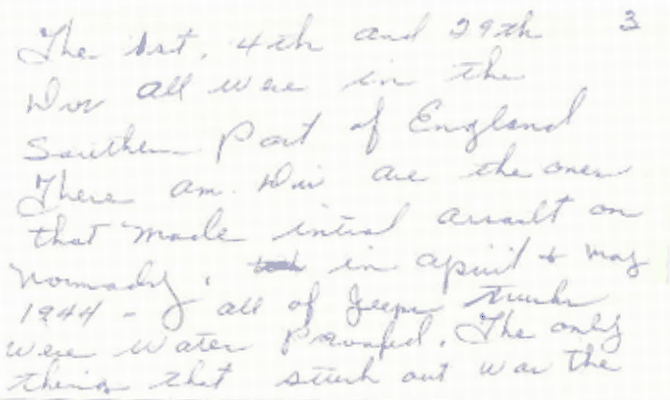 The 1st, 4th and 29th 3
Div all were in the
Southern Part of England
There am. Div are the ones
that made intial assault on
Normady. in april + may
1944 - all of Jeeps trucks
were water Proofed. The only
thing that stuck out was the